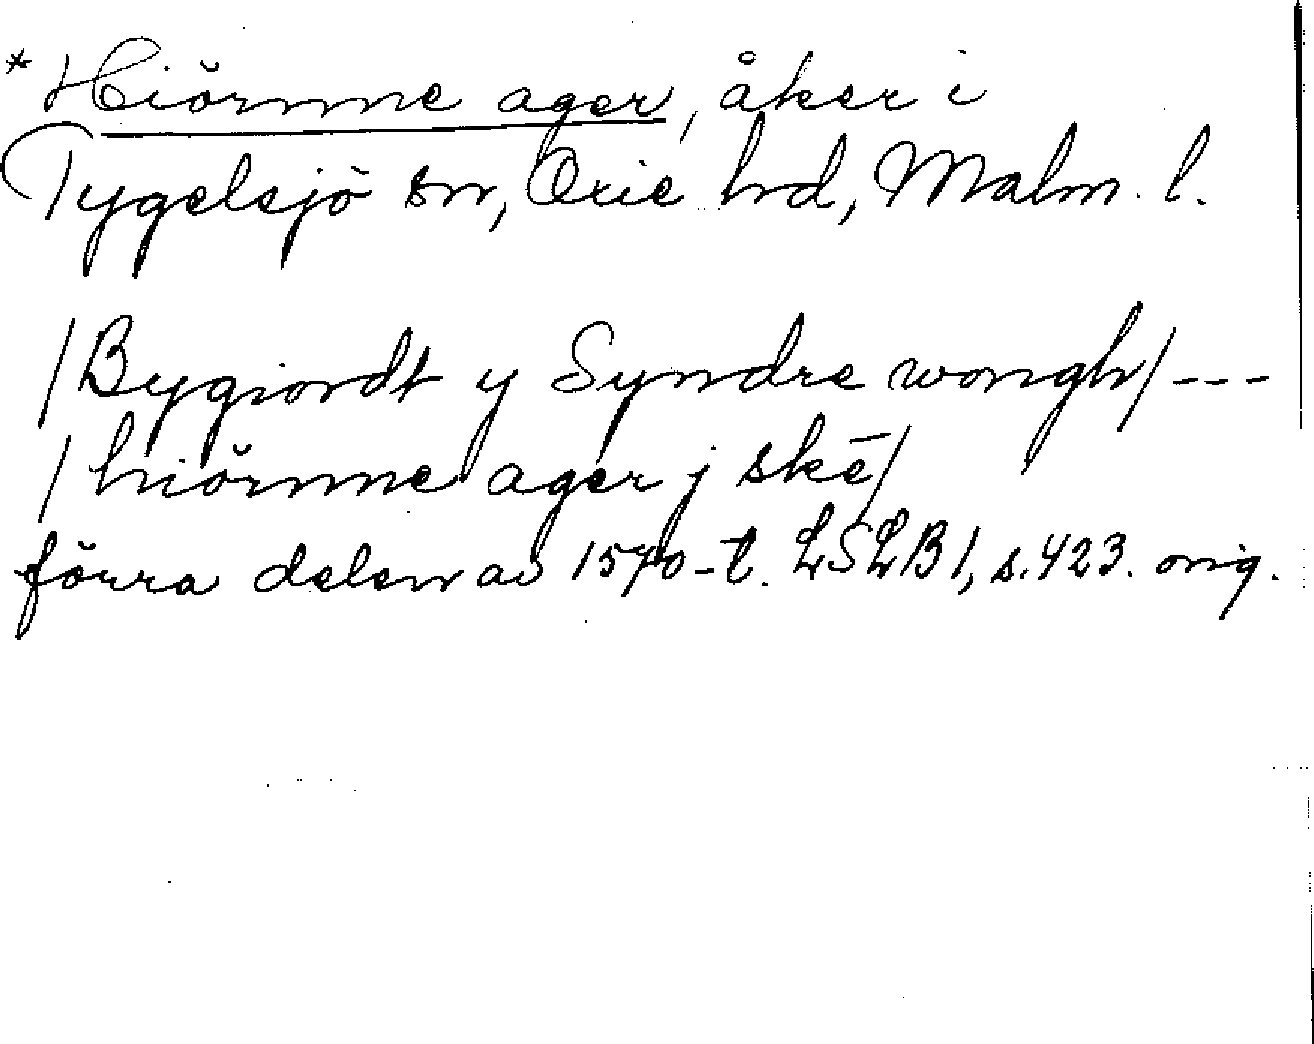 *Hiörnne ager, åker i
Tygelsjö sn, Oxie hd, Malm. l.
/Bygiordt y Syndre wongh/ ---
/hiörnne ager j skē/
förra delen av 1570-t. LSLB1, s.423. orig.